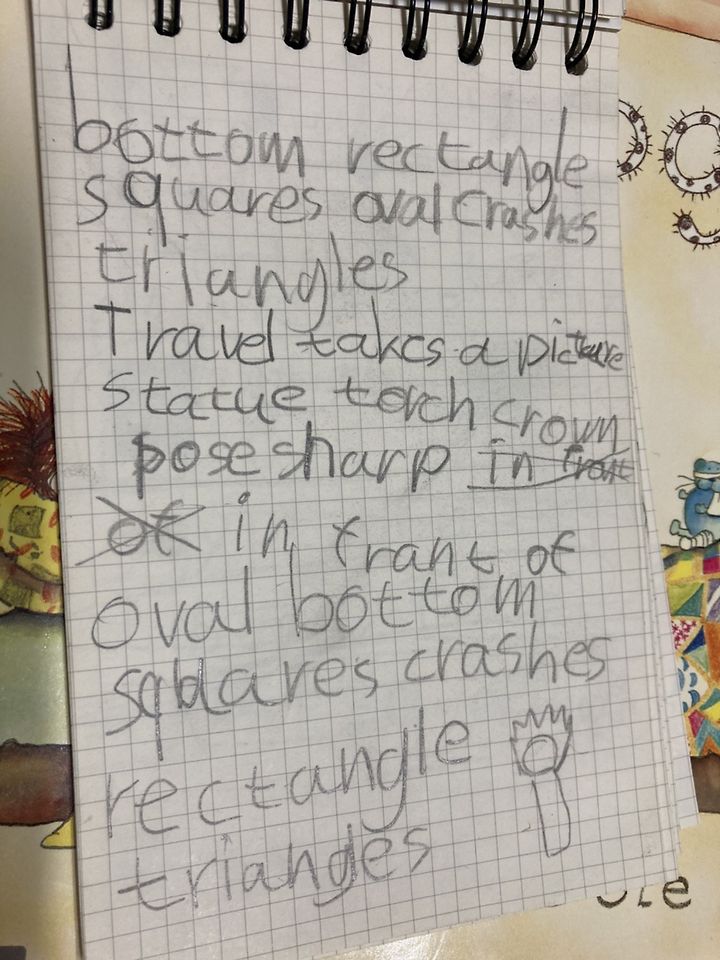 bottom rectangle
squares oval crashes
triangles
Travel takes a picture
statue torch crown
pose sharp in front
of in frant of
oval bottom
squares crashes
rectangle
triangles